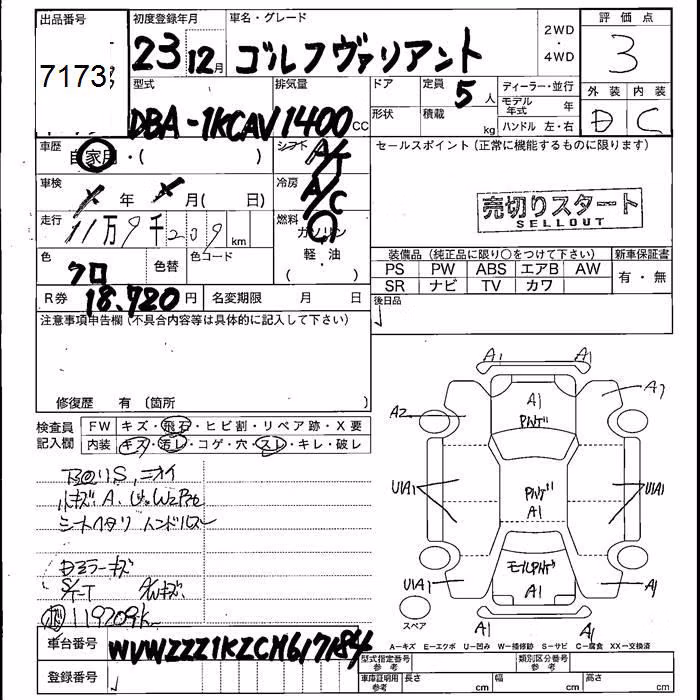 出品番号 初度登録年月 車名・グレード 2WD・4WD 評価点
7173 23 12月 ゴルフヴァリアント 3
型式 排気量 ドア 定員 5人 ディーラー・並行 外装 内装
DBA-1KCAV 1400cc 形状 積載 kg モデル年式 年 ハンドル 左・右 D C
車歴 自家用・( ) シフト A/T セールスポイント(正常に機能するものに限ります)
車検 年 月( 日) 冷房 A/C
走行 11万9千209km 燃料 ガソリン 軽・油 ・( )
売切りスタート
SELLOUT
色 クロ 色替 色コード
装備品(純正品に限り○をつけて下さい) 新車保証書
PS PW ABS エアB AW 有・無
SR ナビ TV カワ
R券 18.720円 名変期限 月 日 後日品
注意事項申告欄(不具合内容等は具体的に記入して下さい)
修復歴 有 〔箇所 〕
検査員記入欄 FW キズ・飛石・ヒビ割・リペア跡・X要
内装 キズ・汚レ・コゲ・穴・スレ・キレ・破レ
シートヘタリ ハンドルスレ
ドアミラーキズ
119209K
A1 A1
A2 A1 A1
U1A1 U1A1
A1
U1A1 A1 A1
スペア
A-キズ E-エクボ U-凹み W-補修跡 S-サビ C-腐食 XX-交換済
車台番号 WVWZZZ1KZCM617184
型式指定番号 参考 類別区分番号 参考
登録番号 車庫証明用 参考 長さ cm 幅 cm 高さ cm